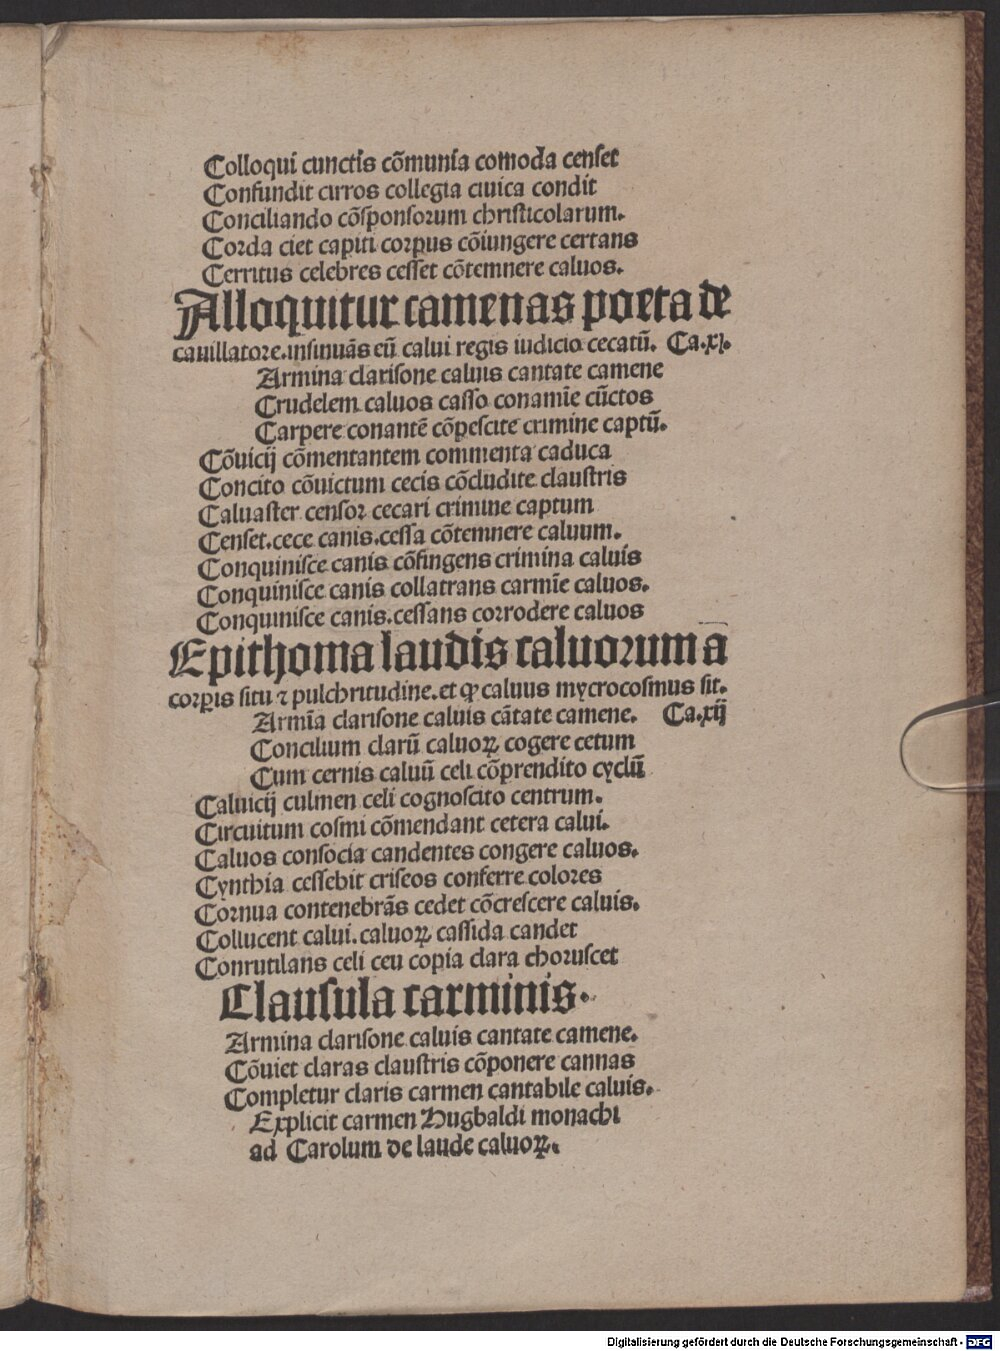 Colloqui cunctis cōmunia comoda censet
Confundit cirros collegia ciuica condit
Conciliando cōsponsorum christicolarum.
Corda ciet capiti corpus cōiungere certans
Cerritus celebres cesset cōtemnere caluos.
Alloquitur camenas poeta de
cauillatore.insinuās eū calui regis iudicio cecatū. Ca.xi.
Armina clarisone caluis cantate camene
Crudelem caluos casso conamīe cūctos
Carpere conantē cōpescite crimine captū.
Cōuicij cōmentantem commenta caduca
Concito cōuictum cecis cōcludite claustris
Caluaster censor cecari crimine captum
Censet.cece canis.cessa cōtemnere caluum.
Conquinisce canis cōfingens crimina caluis
Conquinisce canis collatrans carmīe caluos.
Conquinisce canis.cessans corrodere caluos
Epithoma laudis caluorum a
corꝑis situ ⁊ pulchritudine.et ꝙ caluus mycrocosmus sit.
Armīa clarisone caluis cātate camene. Ca.xij
Concilium clarū caluoꝝ cogere cetum
Cum cernis caluū celi cōprendito cyclū
Caluicij culmen celi cognoscito centrum.
Circuitum cosmi cōmendant cetera calui.
Caluos consocia candentes congere caluos.
Cynthia cessebit criseos conferre colores
Cornua contenebrās cedet cōcrescere caluis.
Collucent calui.caluoꝝ cassida candet
Conrutilans celi ceu copia clara choruscet
Clausula carminis.
Armina clarisone caluis cantate camene.
Cōuiet claras claustris cōponere cannas
Completur claris carmen cantabile caluis.
Explicit carmen Hugbaldi monachi
ad Carolum de laude caluoꝝ.
Digitalisierung gefördert durch die Deutsche Forschungsgemeinschaft - DFG